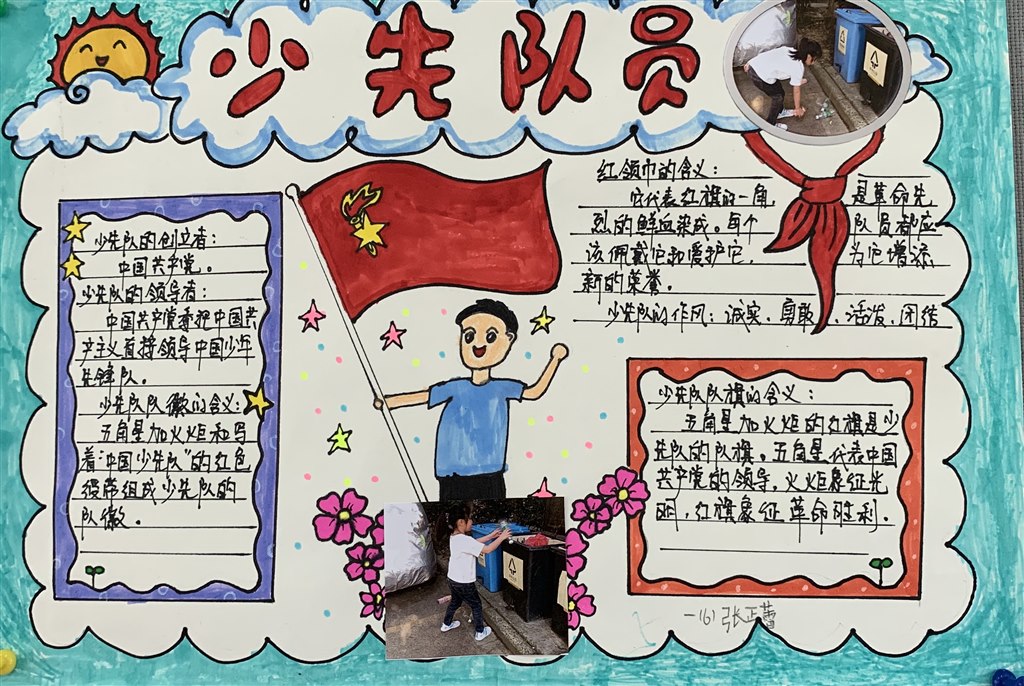 少先队员
少先队的创立者：
中国共产党。
少先队的领导者：
中国共产党委托中国共
产主义青年团领导中国少年
先锋队。
少先队队徽的含义：
五角星加火炬和写
着“中国少先队”的红色
绶带组成少先队的
队徽。
红领巾的含义：
它代表红旗的一角，是革命先
烈的鲜血染成。每个队员都应
该佩戴它和爱护它，为它增添
新的荣誉。
少先队的作风：诚实、勇敢、活泼、团结
少先队队旗的含义：
五角星加火炬的红旗是少
先队的队旗。五角星代表中国
共产党的领导，火炬象征光
明，红旗象征革命胜利。
一(6) 张正蕾